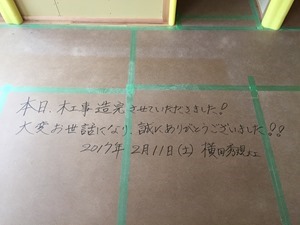 本日、木工事造完させていただきました!
大変お世話になり、誠にありがとうございました!!
2017年 2月11日(土) 横田